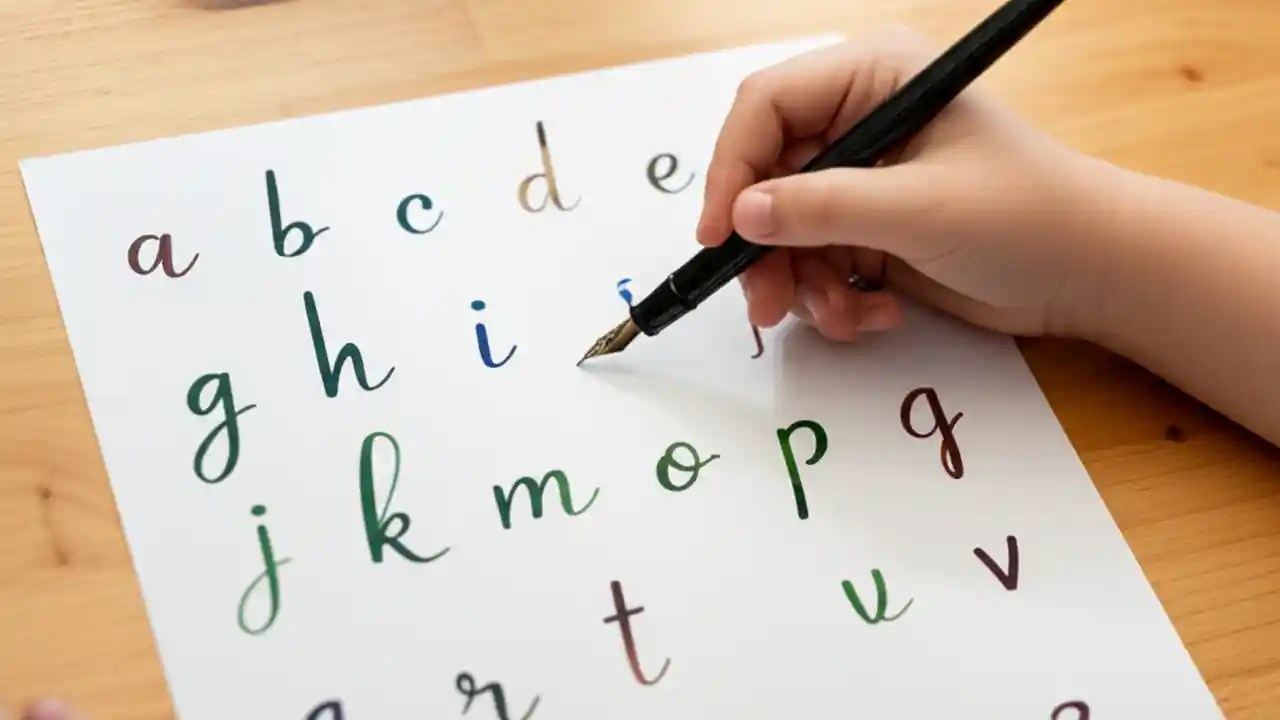 a b c d e
g h i
j k m o p g
t u v
r